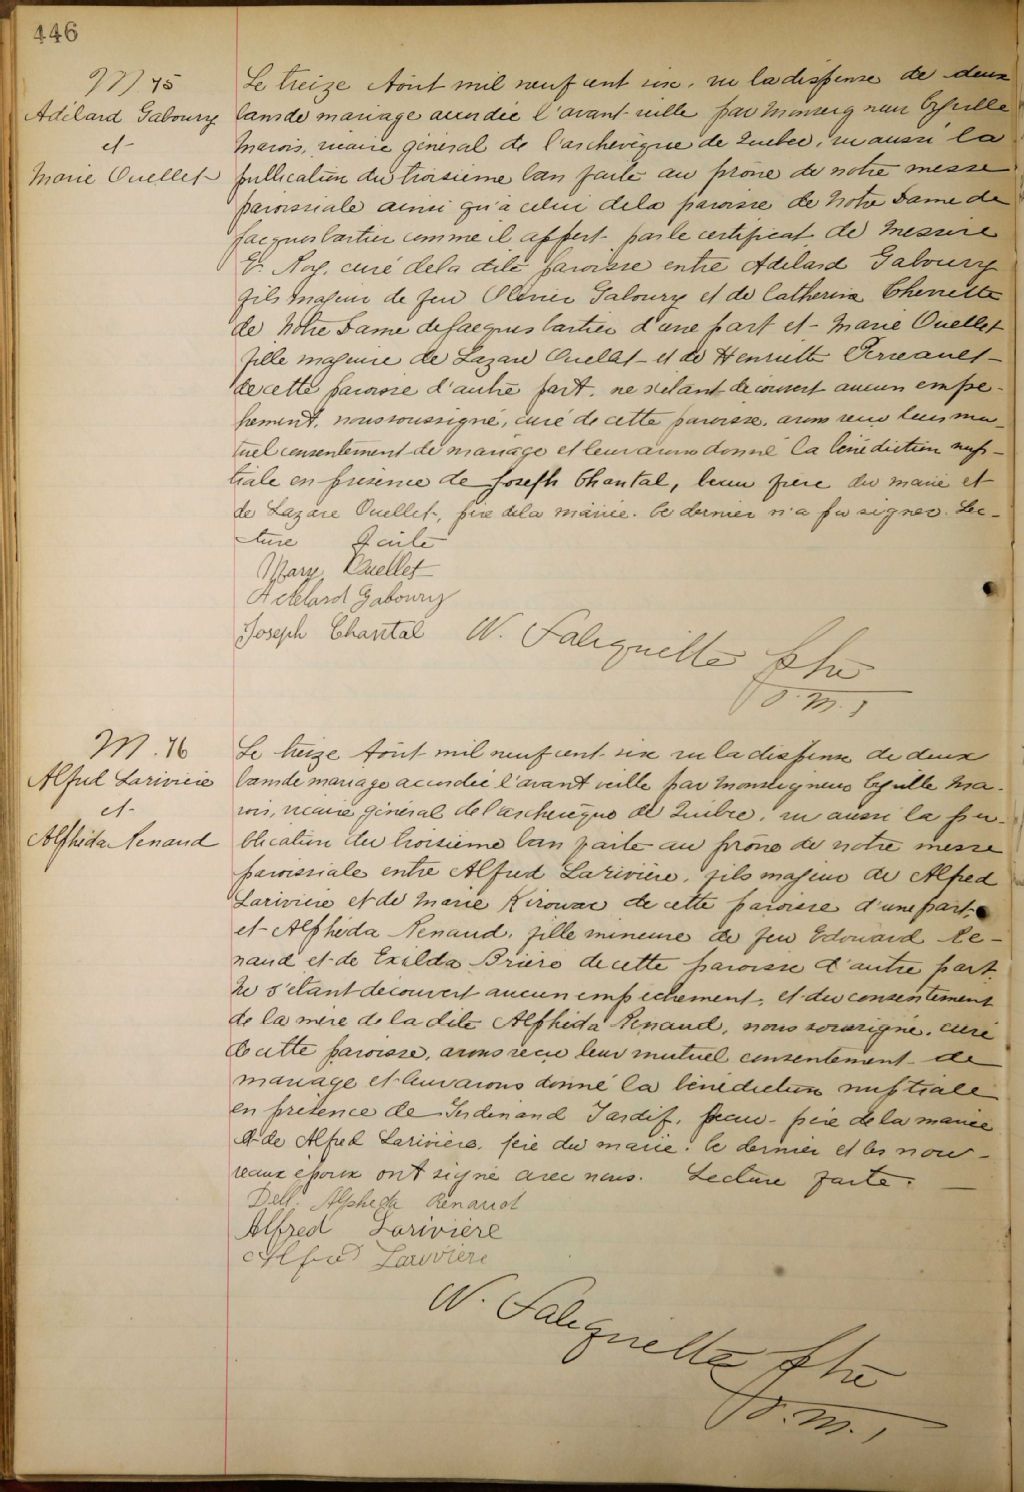 446
M 75
Adélard Gaboury
et
Marie Ouellet
Le treize Août mil neuf cent six, vu la dispense de deux
bans de mariage accordée l'avant-veille par Monseigneur Cyrille
Marois, vicaire général de l'archevêque de Québec, vu aussi la
publication du troisième ban faite au prône de notre messe
paroissiale ainsi qu'à celui de la paroisse de Notre Dame de
Jacques Cartier comme il appert par le certificat de Messire
E. Roy, curé de la dite paroisse entre Adélard Gaboury
fils majeur de feu Olivier Gaboury et de Catherine Chevrette
de Notre Dame de Jacques Cartier d'une part et Marie Ouellet
fille majeure de Lazare Ouellet et de Henriette Perreault
de cette paroisse d'autre part, ne s'étant découvert aucun empê-
chement, nous soussigné, curé de cette paroisse, avons reçu leur mu-
tuel consentement de mariage et leur avons donné la bénédiction nup-
tiale en présence de Joseph Chantal, beau frère du marié et
de Lazare Ouellet, père de la mariée. Ce dernier n'a pu signer. Lec-
ture faite
Mary Ouellet
Adelard Gaboury
Joseph Chantal W. Valiquette ptre
O.M.I
M. 76
Alfred Lariviere
et
Alphéda Renaud
Le treize Août mil neuf cent six vu la dispense de deux
bans de mariage accordée l'avant veille par Monseigneur Cyrille Ma-
rois, vicaire général de l'archevêque de Québec, vu aussi la pu-
blication du troisième ban faite au prône de notre messe
paroissiale entre Alfred Larivière, fils majeur de Alfred
Lariviere et de Marie Kirouac de cette paroisse d'une part,
et Alphéda Renaud, fille mineure de feu Edouard Re-
naud et de Exilda Brière de cette paroisse d'autre part
Ne s'étant découvert aucun empêchement, et du consentement
de la mère de la dite Alphéda Renaud, nous soussigné, curé
de cette paroisse, avons reçu leur mutuel consentement de
mariage et leur avons donné la bénédiction nuptiale
en présence de Ferdinand Tardif, beau-père de la mariée
et de Alfred Larivière, père du marié. Ce dernier et les nou-
veaux époux ont signé avec nous. Lecture faite.
Dell. Alpheda Renaud
Alfred Larivière
Alfred Larivière
W. Valiquette ptre
O.M.I